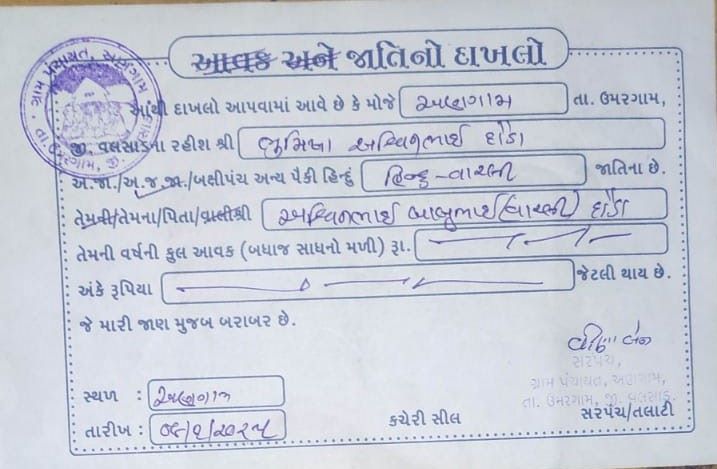 ગ્રામ પંચાયત, અણગામ
તા. ઉમરગામ, જી. વલસાડ
આવક અને જાતિનો દાખલો
આથી દાખલો આપવામાં આવે છે કે મોજે અણગામ તા. ઉમરગામ,
જી. વલસાડના રહીશ શ્રી ભુમિખા અશ્વિનભાઈ દોડા
અ.જા./અ.જ.જા./બક્ષીપંચ અન્ય પૈકી હિન્દુ હિન્દુ-વારલી જાતિના છે.
તેમની/તેમના/પિતા/વાલીશ્રી અશ્વિનભાઈ બાબુભાઈ(વારલી) દોડા
તેમની વર્ષની કુલ આવક (બધાજ સાધનો મળી) રૂા.
અંકે રૂપિયા જેટલી થાય છે.
જે મારી જાણ મુજબ બરાબર છે.
સરપંચ,
ગ્રામ પંચાયત, અણગામ,
તા. ઉમરગામ, જી. વલસાડ.
સ્થળ : અણગામ
કચેરી સીલ સરપંચ/તલાટી
તારીખ :